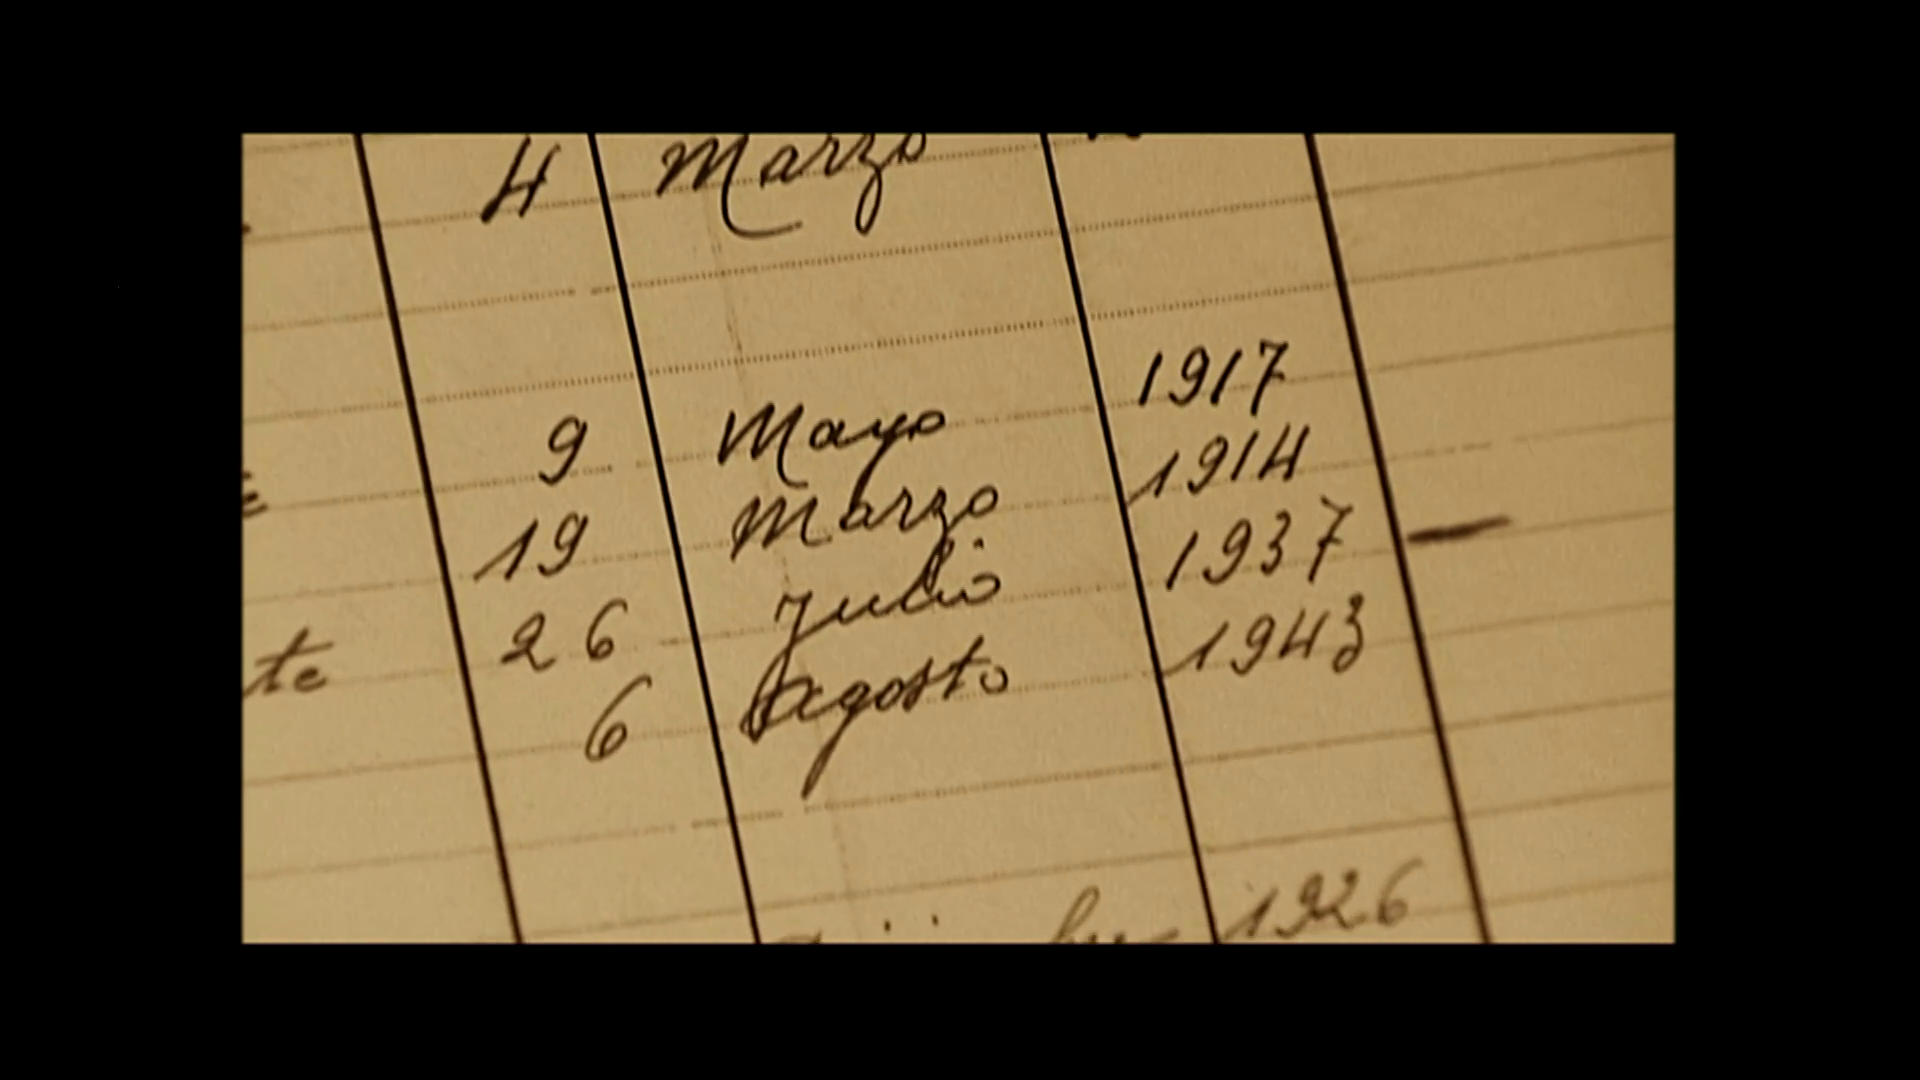 4 Marzo
9 Mayo 1917
19 Marzo 1914
te 26 Julio 1937
6 Agosto 1943
1926